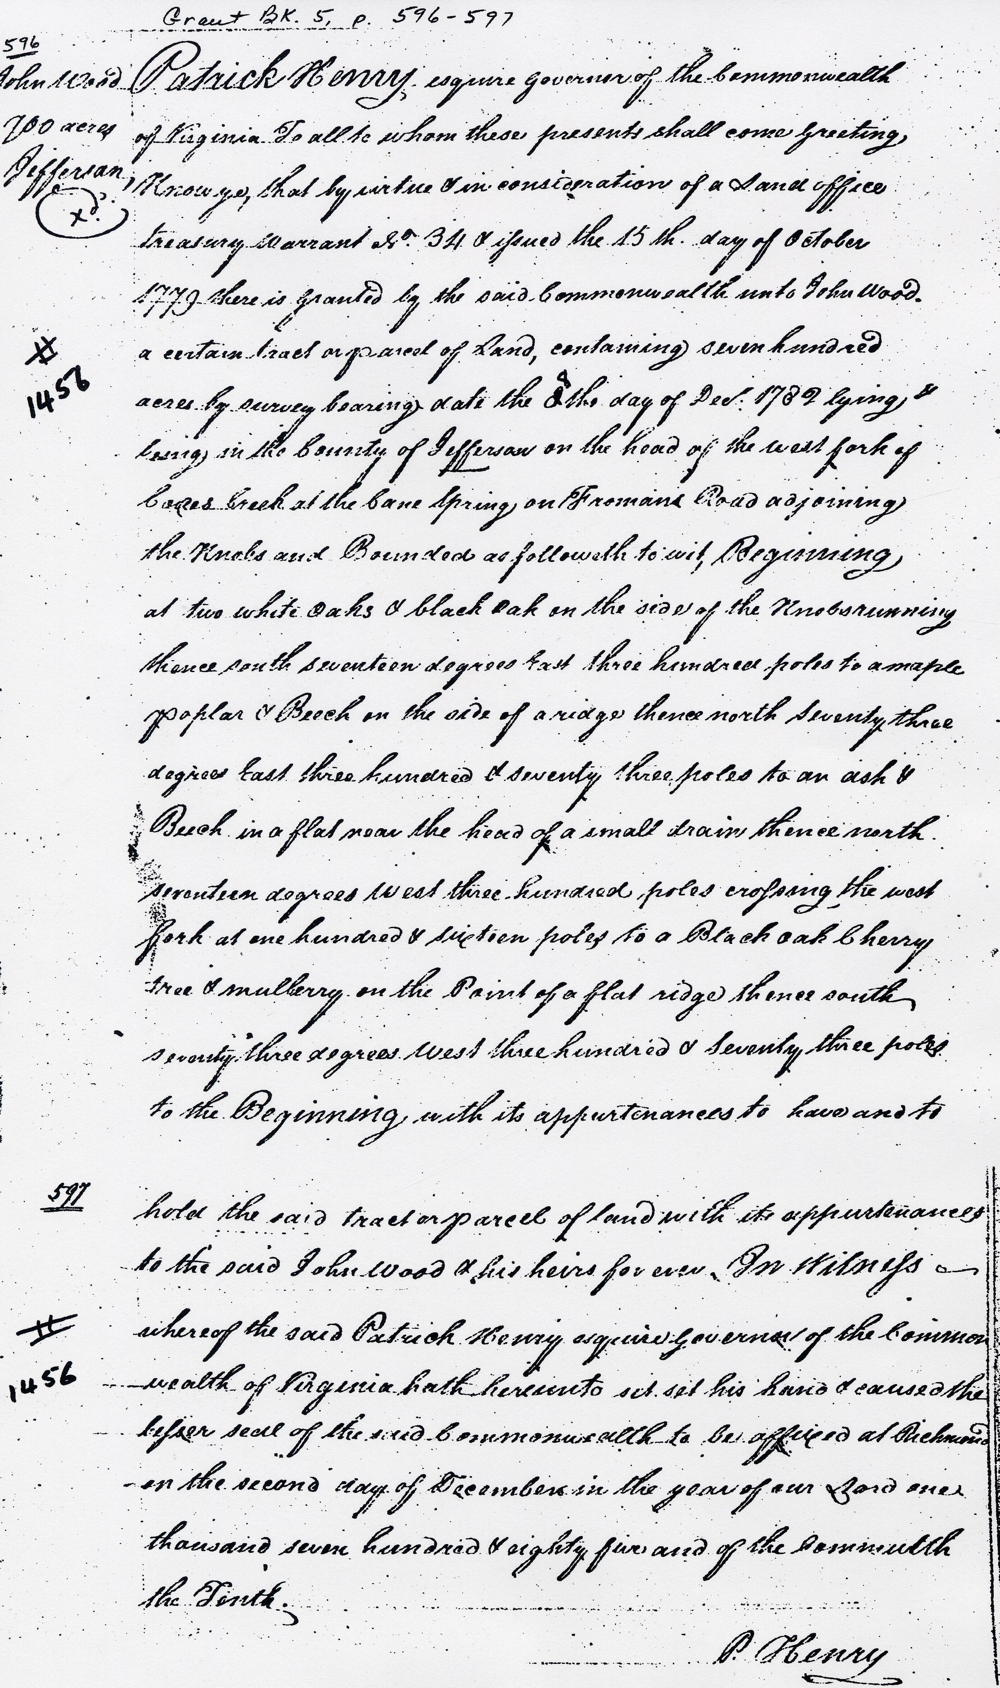 Grant BK. 5, p. 596-597
596
John Wood
700 acres
Jefferson
xd.
Patrick Henry, esquire Governor of the Commonwealth
of Virginia To all to whom these presents shall come Greeting,
Know ye, that by virtue & in consideration of a Land office
treasury Warrant No. 34 & issued the 15th. day of October
1779 there is Granted by the said Commonwealth unto John Wood.
a certain tract or parcel of Land, containing seven hundred
# 1456
acres by survey bearing date the 8th. day of Decr. 1782 lying &
being in the County of Jefferson on the head of the west fork of
Coxes Creek at the Cane Spring, on Fromans Road adjoining
the Knobs and Bounded as followeth to wit, Beginning
at two white Oaks & black Oak on the side of the Knobs running
thence south seventeen degrees East three hundred poles to a maple
poplar & Beech on the side of a ridge thence north Seventy three
degrees East three hundred & seventy three poles to an ash &
Beech in a flat near the head of a small drain thence north
seventeen degrees West three hundred poles crossing the west
fork at one hundred & sixteen poles to a Black oak Cherry
tree & mulberry on the Point of a flat ridge thence south
seventy three degrees West three hundred & Seventy three poles
to the Beginning, with its appurtenances to have and to
597
hold the said tract or parcel of land with its appurtenances
to the said John Wood & his heirs forever. In Witness
# 1456
whereof the said Patrick Henry esquire Governor of the Common
wealth of Virginia hath hereunto set set his hand & caused the
lesser seal of the said Commonwealth to be affixed at Richmond
on the second day of December in the year of our Lord one
thousand seven hundred & eighty five and of the Commwelth
the Tenth.
P. Henry